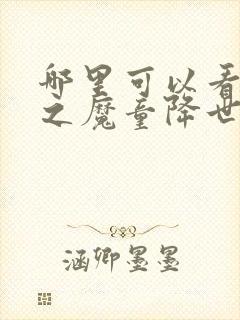 哪里可以看
之魔童降世
涵卿墨墨